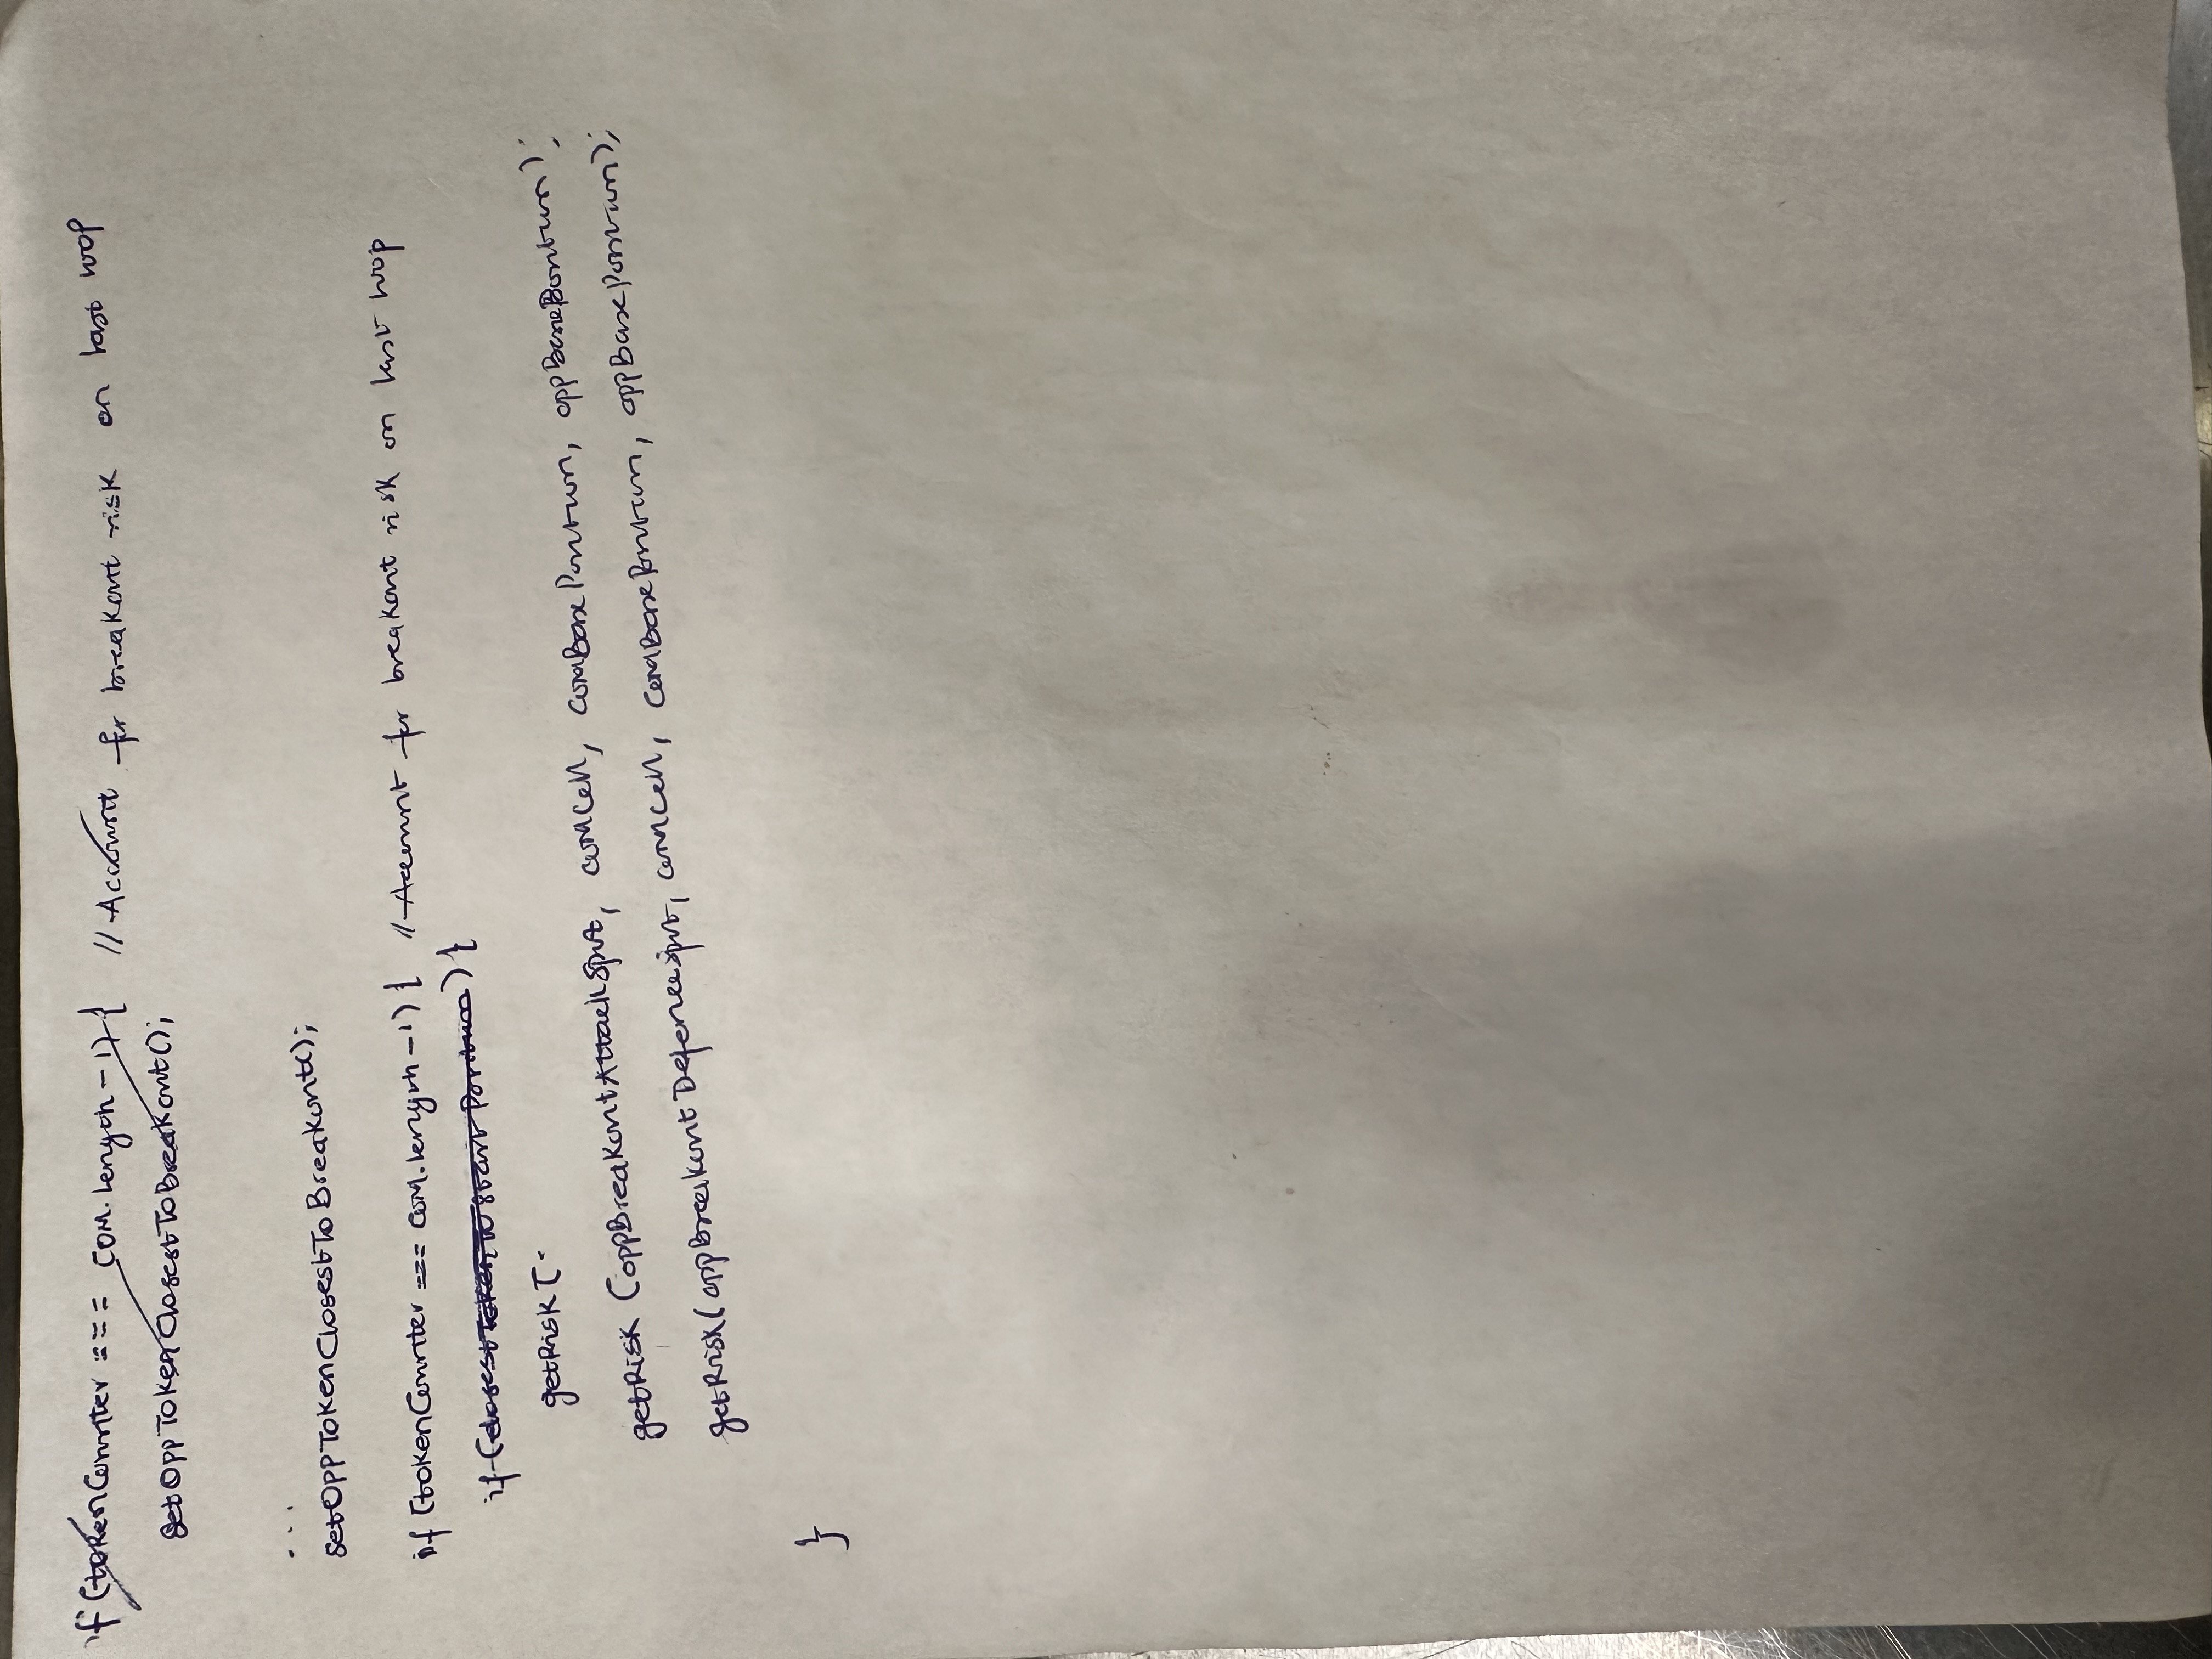 if (tokenCounter === COM.length - 1) { // Account for breakout risk on last loop
setOppTokenClosestToBreakout();
...
setOppTokenClosestToBreakout();
if (tokenCounter === COM.length - 1) { // Account for breakout risk on last loop
if (closestTokenToStartPosition) {
getRisk (
getRisk (oppBreakoutAttackSpot, comCell, comBasePosition, oppBasePosition);
getRisk (oppBreakoutDefenceSpot, comCell, comBasePosition, oppBasePosition);
}